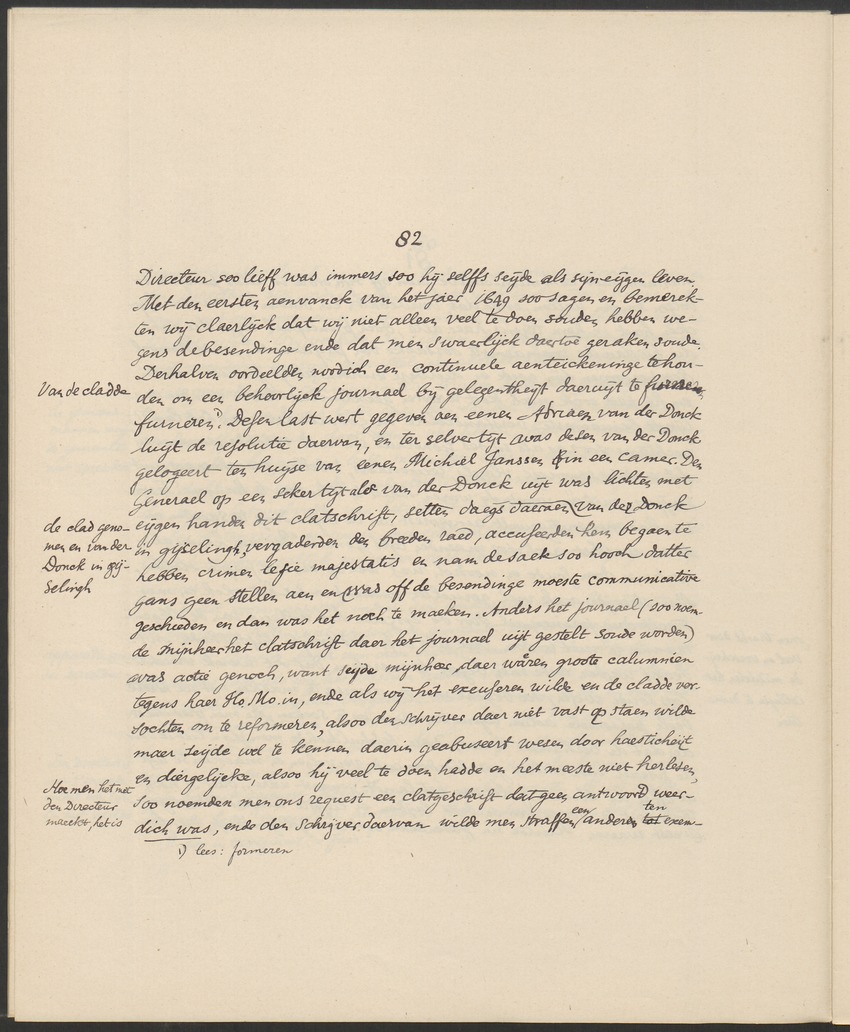 82
Directeur soo lieff was immers soo hij selffs seijde als sijn eijgen leven.
Met den eersten aenvanck van het jaer 1649 soo sagen en bemerck-
ten wij claerlijck dat wij niet alleen veel te doen souden hebben we-
gens de besendinge ende dat men swaerlijck daertoe geraken soude.
Derhalven oordeelden noodich een continuele aenteickeninge te hou-
Van de cladde
den om een behoorlijck journael bij gelegentheijt daeruijt te furneren
furneren¹⁾. Desen last wert gegeven aen eenen Adriaen van der Donck
luijt de resolutie daervan, en ter selver tijt was desen van der Donck
gelogeert ten huijse van eenen Michiel Janssen & in een camer. Den
Generael op een seker tijt als van der Donck uijt was lichten met
de clad geno-
men en van der
Donck in gij-
selingh
eijgen handen dit clatschrift, setten daegs daeraen van der Donck
in gijselingh, vergaderden den breeden raed, accuseerden hem begaen te
hebben crimen lesie majestatis en nam de saek soo hooch datter
gans geen stellen aen en was off de besendinge moeste communicative
geschieden en dan was het noch te maeken. Anders het journael (soo noem-
de mijnheer het clatschrift daer het journael uijt gestelt soude worden)
was actie genoch, want seijde mijnheer, daer waren groote calumnien
tegens haer Ho. Mo. in, ende als wij het excuseren wilde en de cladde ver-
sochten om te reformeren, alsoo den schrijver daer niet vast op staen wilde
maer seijde wel te kennen daerin geabuseert wesen door haesticheijt
en diergelijcke, alsoo hij veel te doen hadde en het meeste niet herlesen,
Hoe men het met
den Directeur
maeckt, het is
soo noemden men ons request een clatgeschrift dat geen antwoord weer-
dich was, ende den schrijver daervan wilde men straffen een anderen ten tot exem-
1) lees: formeren